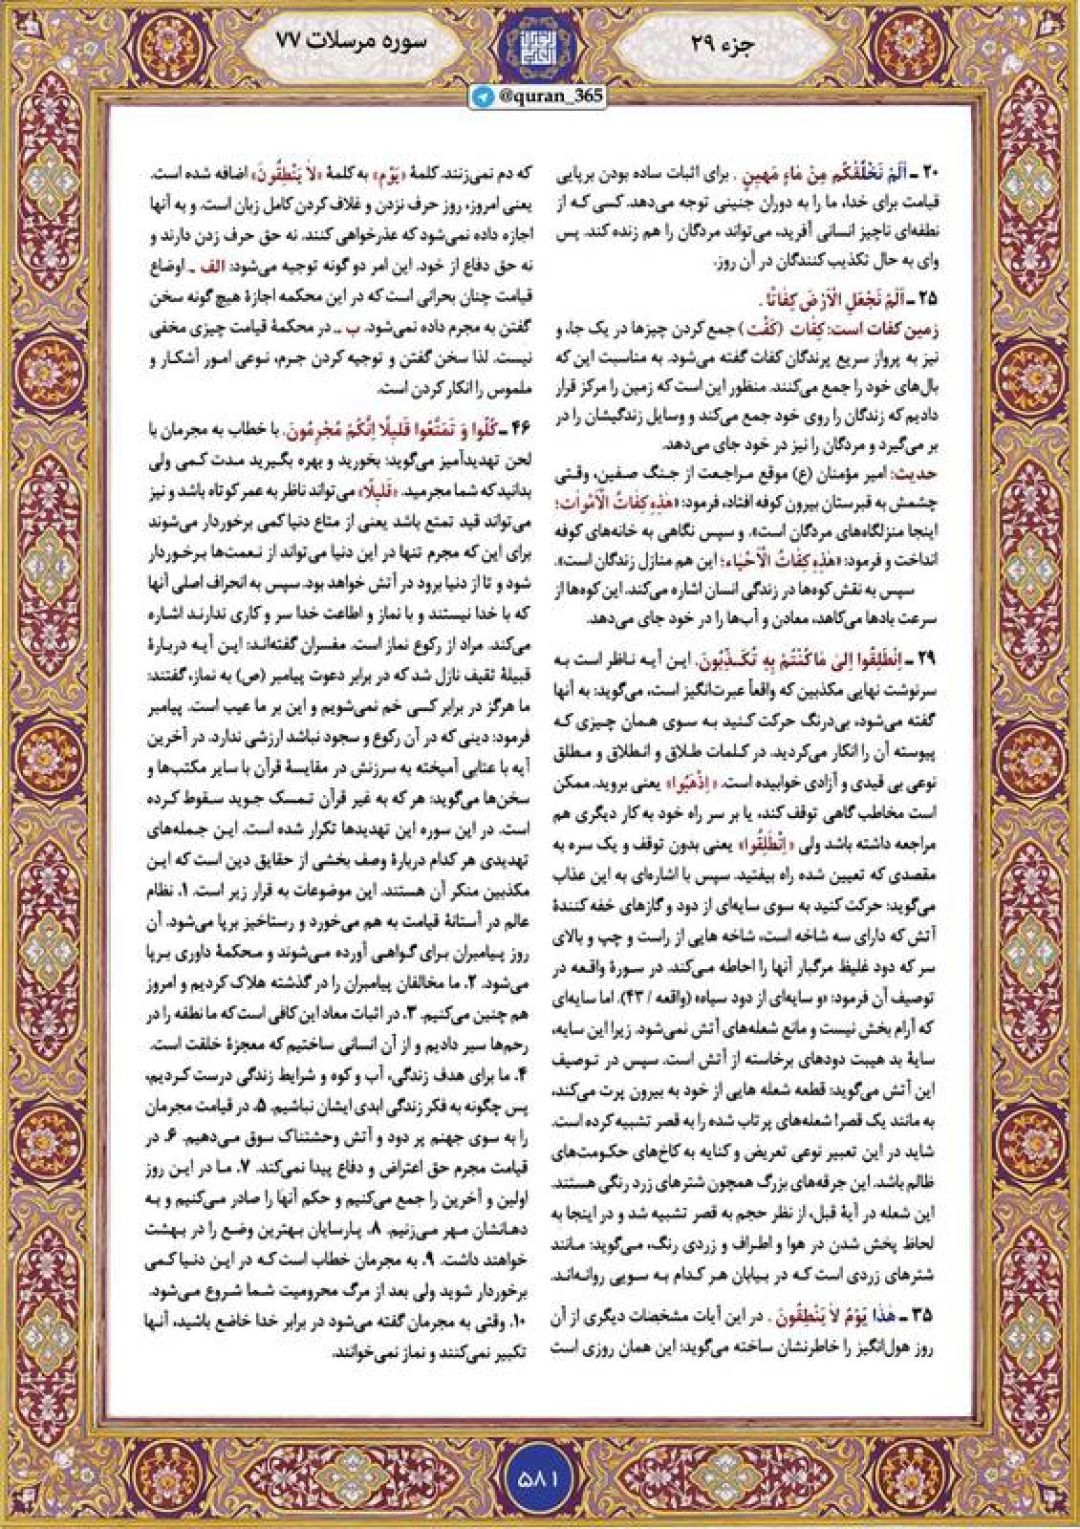 جزء ۲۹
سوره مرسلات ۷۷
@quran_365
۲۰ ـ اَلَمْ نَخْلُقْكُم مِنْ مَاءٍ مَهينٍ . برای اثبات ساده بودن برپایی
قیامت برای خدا، ما را به دوران جنینی توجه می‌دهد. کسی که از
نطفه‌ای ناچیز انسانی آفرید، می‌تواند مردگان را هم زنده کند. پس
وای به حال تکذیب کنندگان در آن روز.
۲۵ ـ اَلَمْ نَجْعَلِ الْاَرْضَ كِفاتًا .
زمین کفات است: کِفات (کَفْت) جمع کردن چیزها در یک جا، و
نیز به پرواز سریع پرندگان کفات گفته می‌شود. به مناسبت این که
بال‌های خود را جمع می‌کنند. منظور این است که زمین را مرکز قرار
دادیم که زندگان را روی خود جمع می‌کند و وسایل زندگیشان را در
بر می‌گیرد و مردگان را نیز در خود جای می‌دهد.
حدیث: امیر مؤمنان (ع) موقع مراجعت از جنگ صفین، وقتی
چشمش به قبرستان بیرون کوفه افتاد، فرمود: «هٰذِهِ كِفاتُ الْاَمْواتِ؛
اینجا منزلگاه‌های مردگان است». و سپس نگاهی به خانه‌های کوفه
انداخت و فرمود: «هٰذِهِ كِفاتُ الْاَحْياءِ؛ این هم منازل زندگان است».
سپس به نقش کوه‌ها در زندگی انسان اشاره می‌کند. این کوه‌ها از
سرعت بادها می‌کاهد، معادن و آب‌ها را در خود جای می‌دهد.
۲۹ ـ اِنْطَلِقُوا اِلیٰ مَا كُنْتُمْ بِهِ تُكَذِّبُونَ. این آیه ناظر است به
سرنوشت نهایی مکذبین که واقعاً عبرت‌انگیز است، می‌گوید: به آنها
گفته می‌شود، بی‌درنگ حرکت کنید به سوی همان چیزی که
پیوسته آن را انکار می‌کردید. در کلمات طلاق و انطلاق و مطلق
نوعی بی قیدی و آزادی خوابیده است. «اِذْهَبُوا» یعنی بروید. ممکن
است مخاطب گاهی توقف کند، یا بر سر راه خود به کار دیگری هم
مراجعه داشته باشد ولی «اِنْطَلِقُوا» یعنی بدون توقف و یک سره به
مقصدی که تعیین شده راه بیفتید. سپس با اشاره‌ای به این عذاب
می‌گوید: حرکت کنید به سوی سایه‌ای از دود و گازهای خفه کنندهٔ
آتش که دارای سه شاخه است، شاخه هایی از راست و چپ و بالای
سر که دود غلیظ مرگبار آنها را احاطه می‌کند. در سورهٔ واقعه در
توصیف آن فرمود: «و سایه‌ای از دود سیاه» (واقعه / ۴۳). اما سایه‌ای
که آرام بخش نیست و مانع شعله‌های آتش نمی‌شود. زیرا این سایه،
سایهٔ بد هیبت دودهای برخاسته از آتش است. سپس در توصیف
این آتش می‌گوید: قطعه شعله هایی از خود به بیرون پرت می‌کند،
به مانند یک قصر! شعله‌های پرتاب شده را به قصر تشبیه کرده است.
شاید در این تعبیر نوعی تعریض و کنایه به کاخ‌های حکومت‌های
ظالم باشد. این جرقه‌های بزرگ همچون شترهای زرد رنگی هستند.
این شعله در آیهٔ قبل، از نظر حجم به قصر تشبیه شد و در اینجا به
لحاظ پخش شدن در هوا و اطراف و زردی رنگ، می‌گوید: مانند
شترهای زردی است که در بیابان هر کدام به سویی روانه‌اند.
۳۵ ـ هٰذا يَوْمُ لاٰ يَنْطِقُونَ . در این آیات مشخصات دیگری از آن
روز هول‌انگیز را خاطرنشان ساخته می‌گوید: این همان روزی است
که دم نمی‌زنند. کلمهٔ «يَوْم» به کلمهٔ «لاٰ يَنْطِقُونَ» اضافه شده است.
یعنی امروز، روز حرف نزدن و غلاف کردن کامل زبان است. و به آنها
اجازه داده نمی‌شود که عذرخواهی کنند. نه حق حرف زدن دارند و
نه حق دفاع از خود. این امر دو گونه توجیه می‌شود: الف ـ اوضاع
قیامت چنان بحرانی است که در این محکمه اجازهٔ هیچ گونه سخن
گفتن به مجرم داده نمی‌شود. ب ـ در محکمهٔ قیامت چیزی مخفی
نیست. لذا سخن گفتن و توجیه کردن جرم، نوعی امور آشکار و
ملموس را انکار کردن است.
۴۶ ـ كُلُوا وَ تَمَتَّعُوا قَليلًا اِنَّكُمْ مُجْرِمُونَ. با خطاب به مجرمان با
لحن تهدیدآمیز می‌گوید: بخورید و بهره بگیرید مدت کمی ولی
بدانید که شما مجرمید. «قَليلًا» می‌تواند ناظر به عمر کوتاه باشد و نیز
می‌تواند قید تمتع باشد یعنی از متاع دنیا کمی برخوردار می‌شوند
برای این که مجرم تنها در این دنیا می‌تواند از نعمت‌ها برخوردار
شود و تا از دنیا برود در آتش خواهد بود. سپس به انحراف اصلی آنها
که با خدا نیستند و با نماز و اطاعت خدا سر و کاری ندارند اشاره
می‌کند. مراد از رکوع نماز است. مفسران گفته‌اند: این آیه دربارهٔ
قبیلهٔ ثقیف نازل شد که در برابر دعوت پیامبر (ص) به نماز، گفتند:
ما هرگز در برابر کسی خم نمی‌شویم و این بر ما عیب است. پیامبر
فرمود: دینی که در آن رکوع و سجود نباشد ارزشی ندارد. در آخرین
آیه با عتابی آمیخته به سرزنش در مقایسهٔ قرآن با سایر مکتب‌ها و
سخن‌ها می‌گوید: هر که به غیر قرآن تمسک جوید سقوط کرده
است. در این سوره این تهدیدها تکرار شده است. این جمله‌های
تهدیدی هر کدام دربارهٔ وصف بخشی از حقایق دین است که این
مکذبین منکر آن هستند. این موضوعات به قرار زیر است. ۱. نظام
عالم در آستانهٔ قیامت به هم می‌خورد و رستاخیز برپا می‌شود. آن
روز پیامبران برای گواهی آورده می‌شوند و محکمهٔ داوری برپا
می‌شود. ۲. ما مخالفان پیامبران را در گذشته هلاک کردیم و امروز
هم چنین می‌کنیم. ۳. در اثبات معاد این کافی است که ما نطفه را در
رحم‌ها سیر دادیم و از آن انسانی ساختیم که معجزهٔ خلقت است.
۴. ما برای هدف زندگی، آب و کوه و شرایط زندگی درست کردیم،
پس چگونه به فکر زندگی ابدی ایشان نباشیم. ۵. در قیامت مجرمان
را به سوی جهنم پر دود و آتش وحشتناک سوق می‌دهیم. ۶. در
قیامت مجرم حق اعتراض و دفاع پیدا نمی‌کند. ۷. ما در این روز
اولین و آخرین را جمع می‌کنیم و حکم آنها را صادر می‌کنیم و به
دهانشان مهر می‌زنیم. ۸. پارسایان بهترین وضع را در بهشت
خواهند داشت. ۹. به مجرمان خطاب است که در این دنیا کمی
برخوردار شوید ولی بعد از مرگ محرومیت شما شروع می‌شود.
۱۰. وقتی به مجرمان گفته می‌شود در برابر خدا خاضع باشید، آنها
تکبیر نمی‌کنند و نماز نمی‌خوانند.
۵۸۱